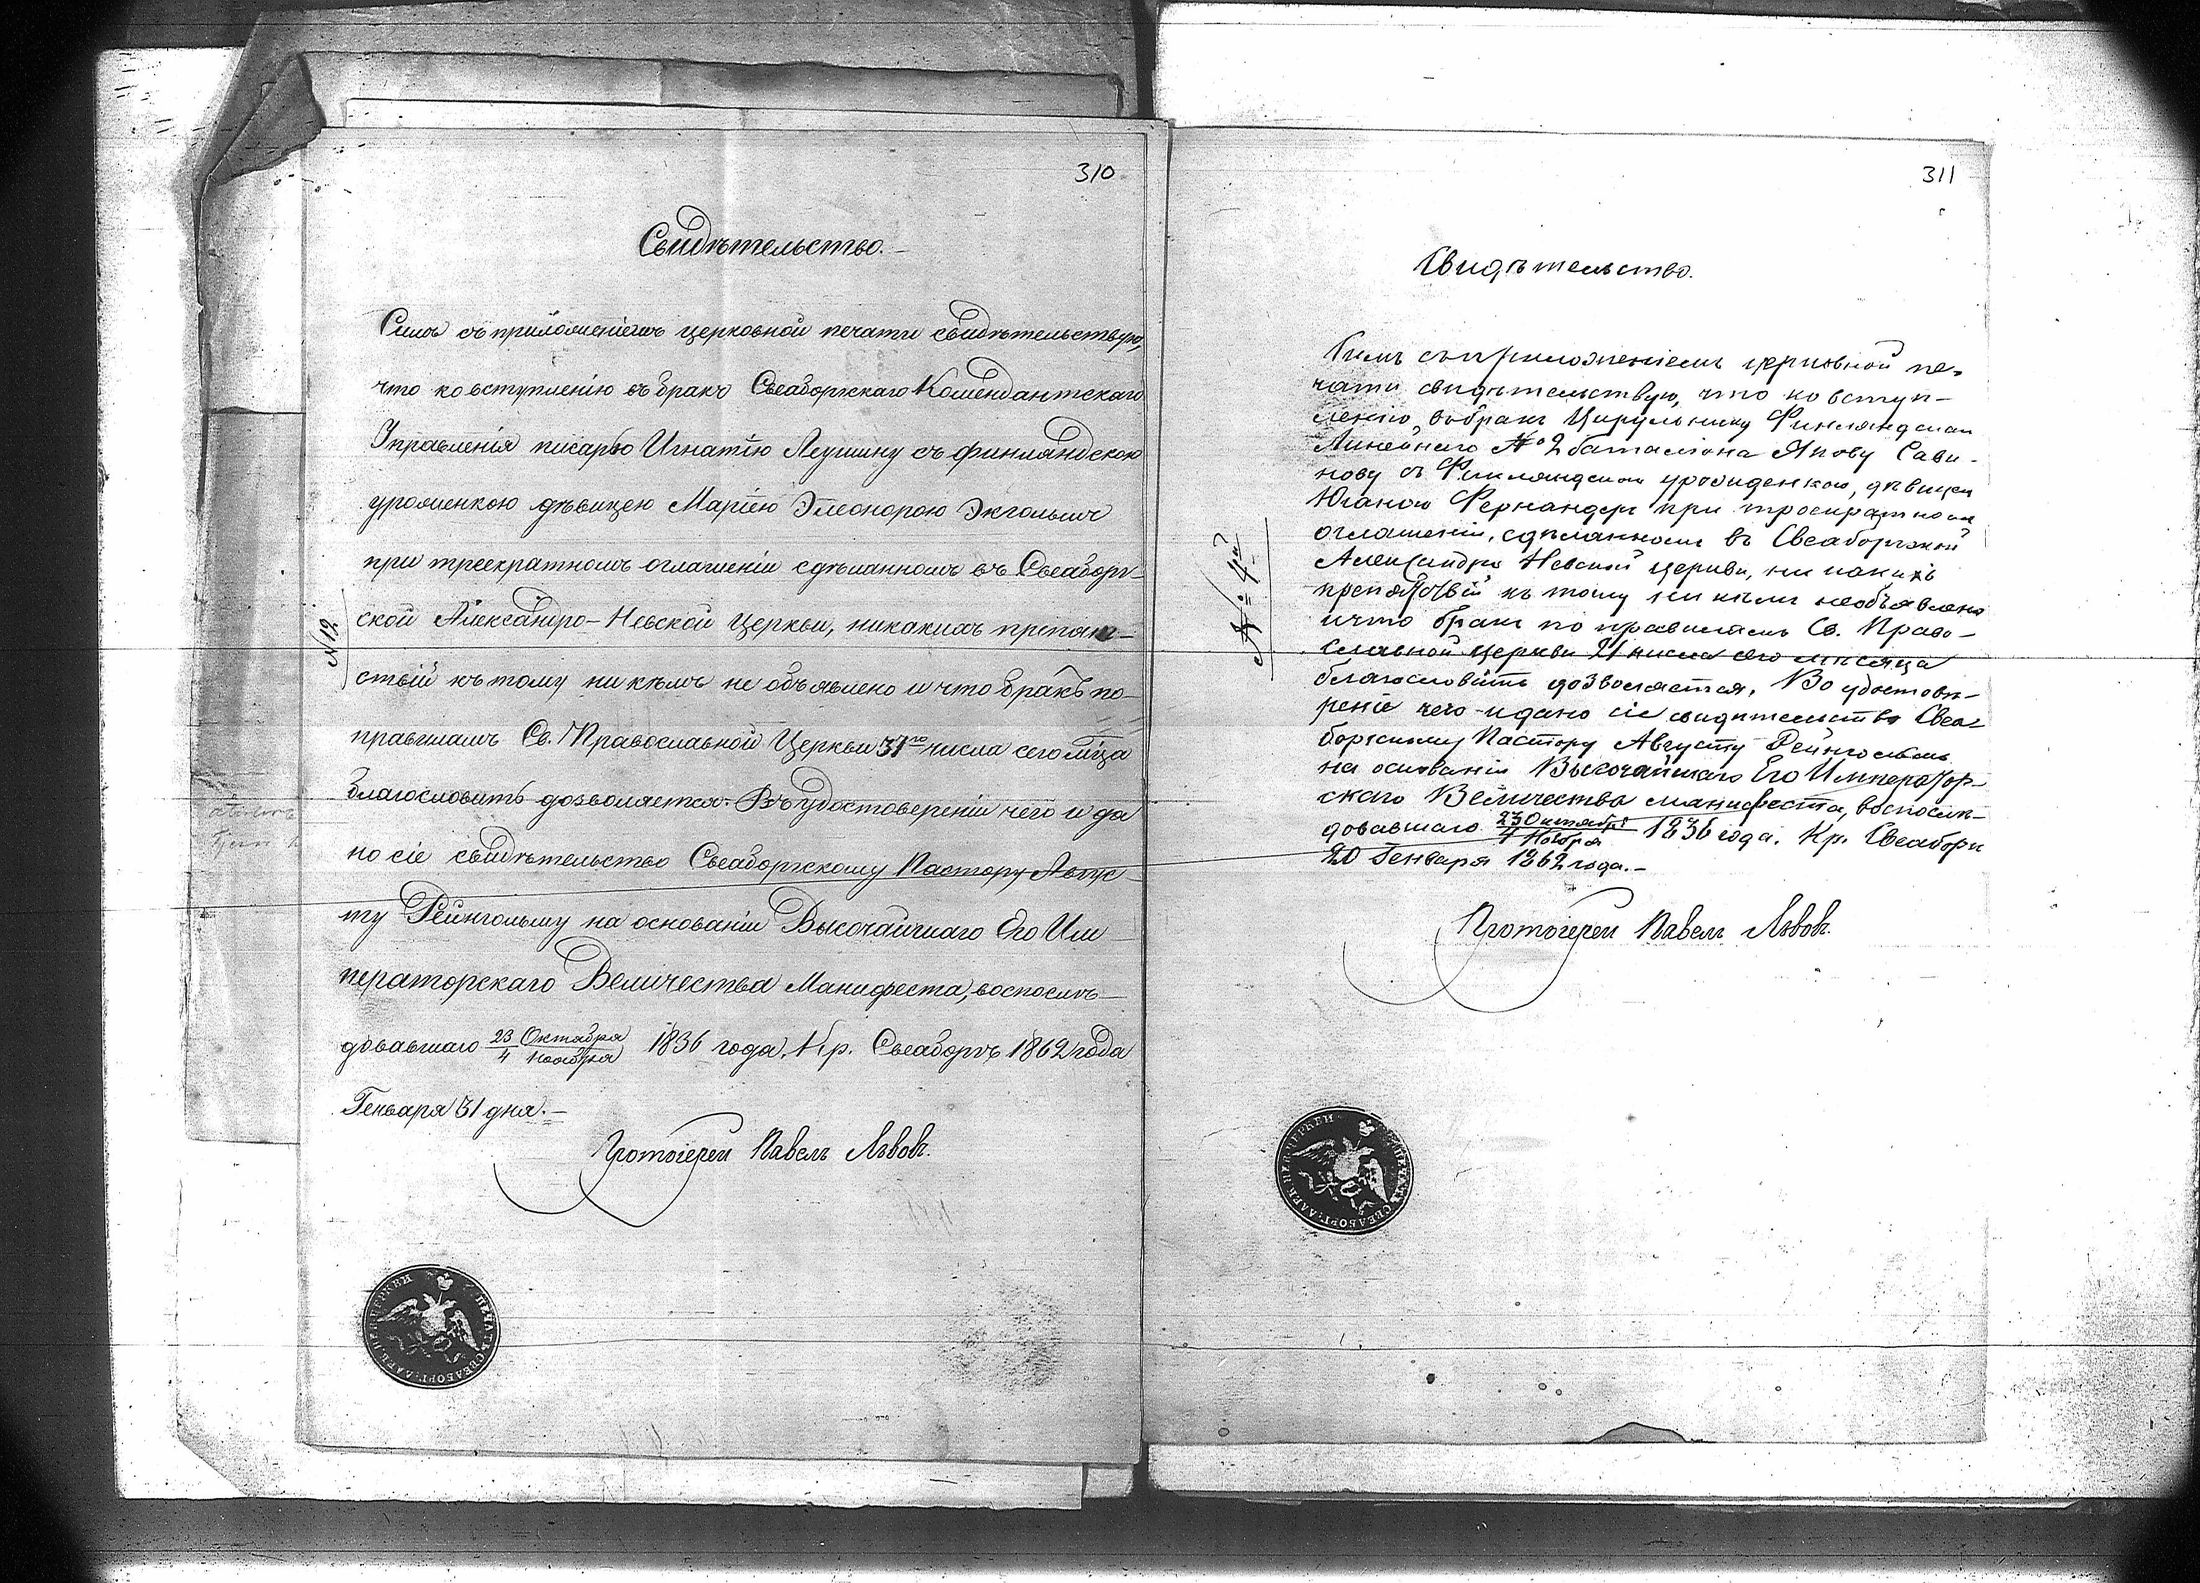 310
Свидѣтельство.
Симъ съ приложеніемъ церковной печати свидѣтельствую,
что ко вступленію въ бракъ Свеаборгскаго Комендантскаго
Управленія писарю Игнатію Леушину съ финляндскою
уроженкою дѣвицею Маріею Элеонорою Экгольмъ
при троекратномъ оглашеніи сдѣланномъ въ Свеаборг-
ской Александро-Невской Церкви, никакихъ препят-
ствій къ тому ни кѣмъ не объявлено и что бракъ по
правиламъ Св. Православной Церкви 31го числа сего мѣсяца
благословить дозволяется. Въ удостовереніи чего и да
но сіе свидѣтельство Свеаборгскому Пастору Авгус-
ту Рейнгольму на основаніи Высочайшаго Его Им-
ператорскаго Величества Манифеста, воспослѣ-
довавшаго 23 Октября / 4 Ноября 1836 года. Кр. Свеаборгъ 1862 года
Генваря 31 дня.
Протоіерей Павелъ Львовъ.
N 12.
ПЕЧАТЬ СВЕАБОРГ: АЛЕК: НЕВ: ЦЕРКВИ
311
Свидѣтельство.
Симъ съ приложеніемъ церковной пе-
чати свидѣтельствую, что ко вступ-
ленію въ бракъ Цирульнику Финляндскаго
Линейнаго № 2 баталіона Якову Сави-
нову съ Финляндскою уроженкою, дѣвицею
Юганою Фернандеръ при троекратномъ
оглашеніи, сдѣланномъ въ Свеаборгской
Александро Невской церкви, ни какихъ
препятствій къ тому ни кѣмъ необъявлено
и что бракъ по правиламъ Св. Право-
славной церкви 21 числа сего мѣсяца
благословить дозволяется. Во удостовѣ-
реніе чего и дано сіе свидѣтельство Свеа-
боргскому Пастору Августу Рейнгольмъ
на основаніи Высочайшаго Его Император-
скаго Величества манифеста, воспослѣ-
довавшаго 23 Октября / 4 Ноября 1836 года. Кр. Свеаборгъ
20 Генваря 1862 года.
Протоіерей Павелъ Львовъ.
ПЕЧАТЬ СВЕАБОРГ: АЛЕК: НЕВ: ЦЕРКВИ